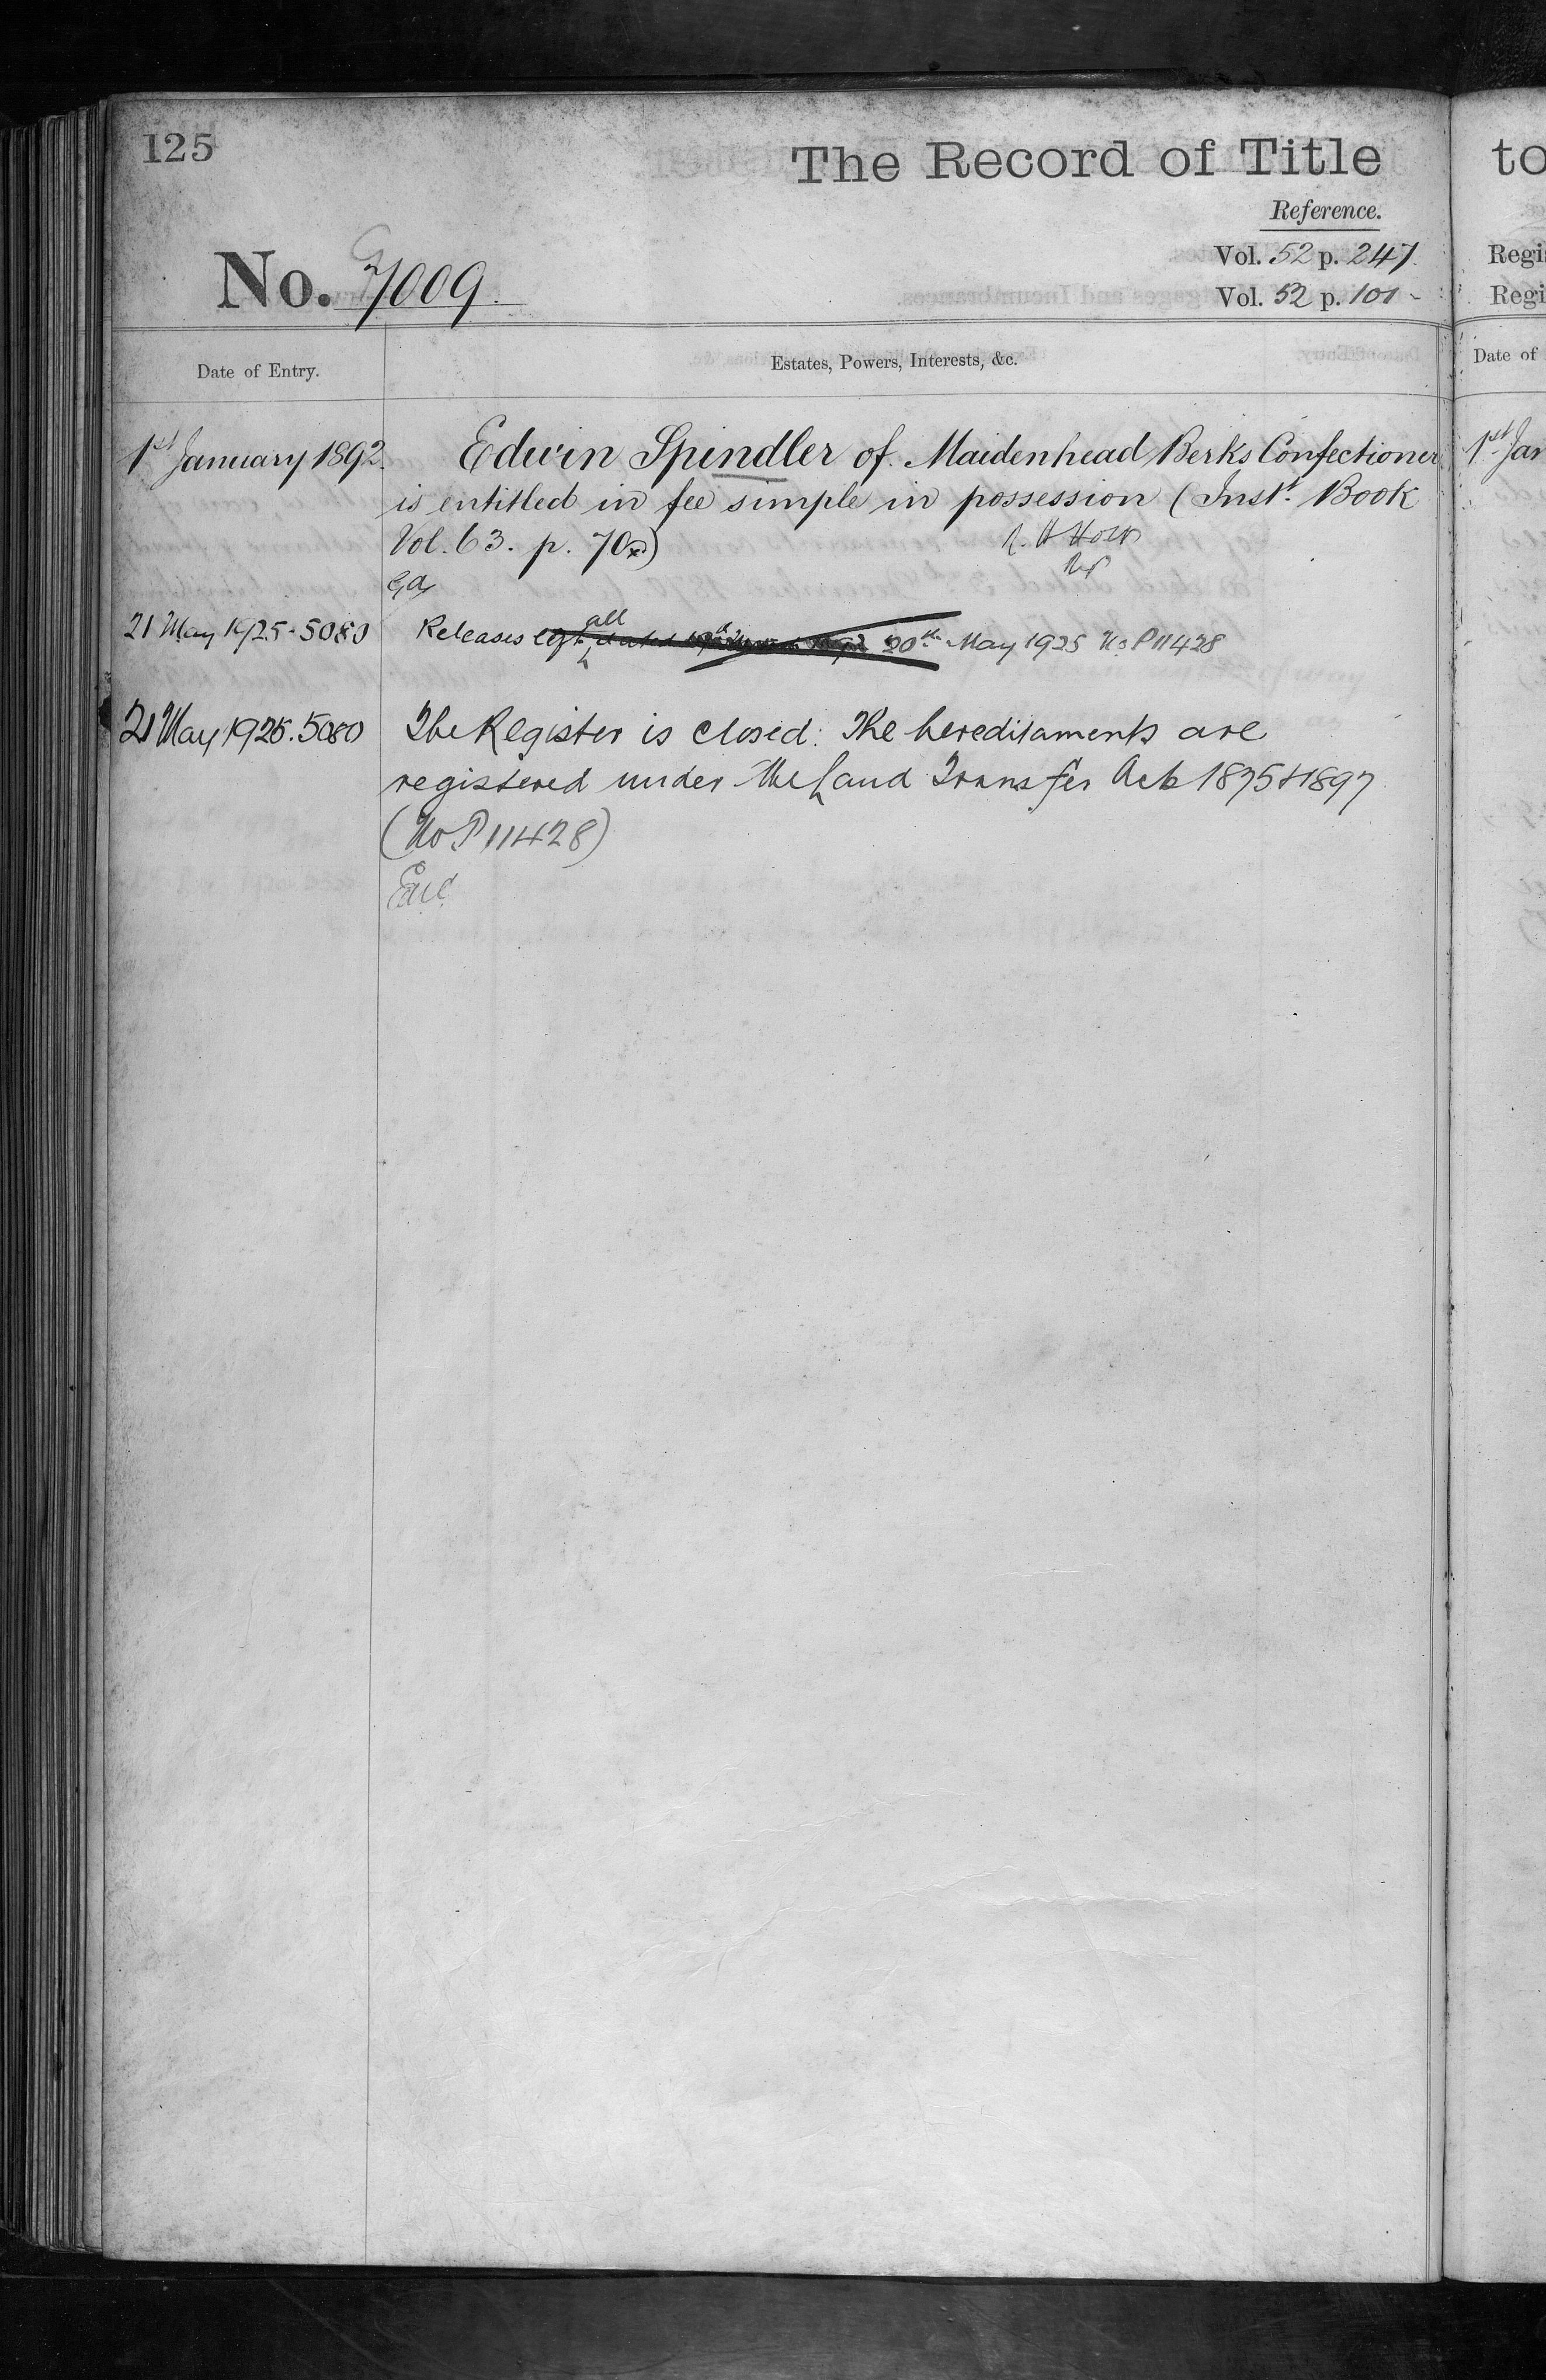 125
The Record of Title
Reference.
Vol. 52 p. 247.
No. 7009.
Vol. 52 p. 101
Date of Entry.
Estates, Powers, Interests, &c.
1st January 1892.
Edwin Spindler of Maidenhead Berks Confectioner
is entitled in fee simple in possession (Inst. Book
Vol. 63. p. 70)
21 May 1925. 5080
Releases all dated 20th May 1925 No P 11428
21 May 1925. 5080
The Register is closed: The hereditaments are
registered under the Land Transfer Acts 1875 & 1897
(No P 11428)
to
Regis
Regi
Date of
1st Jan